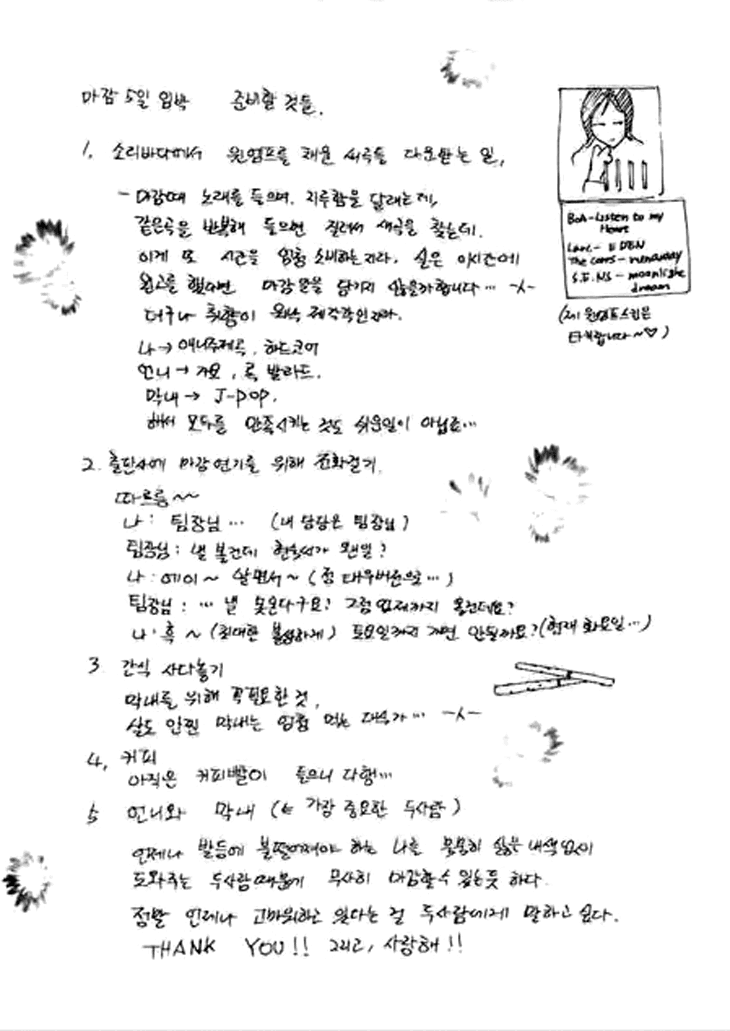 마감 5일 임박 준비할 것들.
1. 소리바다에서 윈엠프를 채울 새곡들 다운받는 일.
- 마감때 노래를 들으며, 지루함을 달래는데,
같은곡을 반복해 들으면 질려서 새곡을 찾는데.
이게 또 시간을 엄청 소비하는지라, 실은 이시간에
원고를 했다면 마감일을 넘기지 않을까합니다... -ㅅ-
더구나 취향이 워낙 제각각인지라.
나 → 애니주제곡, 하드코어
언니 → 가요, 록 발라드.
막내 → J-POP.
해서 모두를 만족시키는 것도 쉬운일이 아닙죠...
BoA-Listen to my
Heart
Larc- EDEN
The corrs - runaway
S.E.NS - moonlight
dream
(제 윈엠프스킨은
타케랍니다~♡)
2. 출판사에 마감연기를 위해 전화걸기.
따르릉~~
나: 팀장님... (내 담당은 팀장님)
팀장님: 낼 볼건데 현숙씨가 왠일?
나: 에이~ 살면서~ (점 태우버전으로...)
팀장님: ... 낼 못온다구요? 그럼 언제까지 올건데요?
나: 흑~ (최대한 불쌍하게) 토요일까지 가면 안될까요? (현재 화요일...)
3 간식 사다놓기
막내를 위해 꼭필요한 것.
살도 안찐 막내는 엄청 먹는 대식가... -ㅅ-
4. 커피
아직은 커피빨이 들으니 다행...
5 언니와 막내 (← 가장 중요한 두사람)
언제나 발등에 불떨어져야 하는 나를 묵묵히 싫은 내색없이
도와주는 두사람때문에 무사히 마감할수 있는듯 하다.
정말 언제나 고마워하고 있다는 걸 두사람에게 말하고 싶다.
THANK YOU!! 그리고, 사랑해!!